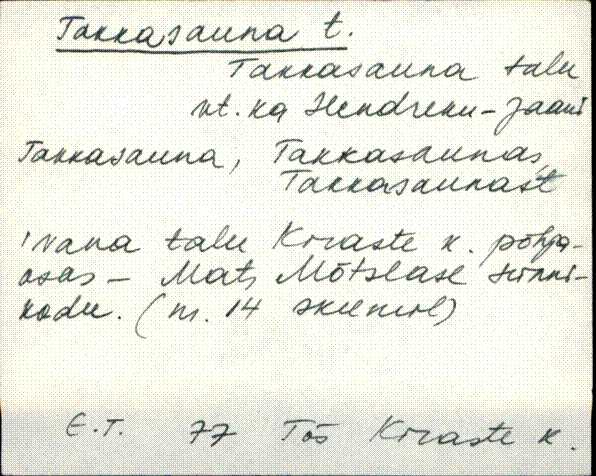 Takkasauna t.
Takkasauna talu
vt. ka Hendreku-Jaani
Takkasauna, Takkasaunas,
Takkasaunast
Vana talu Kiraste k. põhja-
osas - Mats Mõtslase sünni-
kodu. (nr. 14 skeemil)
E.T. 77 Tõs Kiraste k.